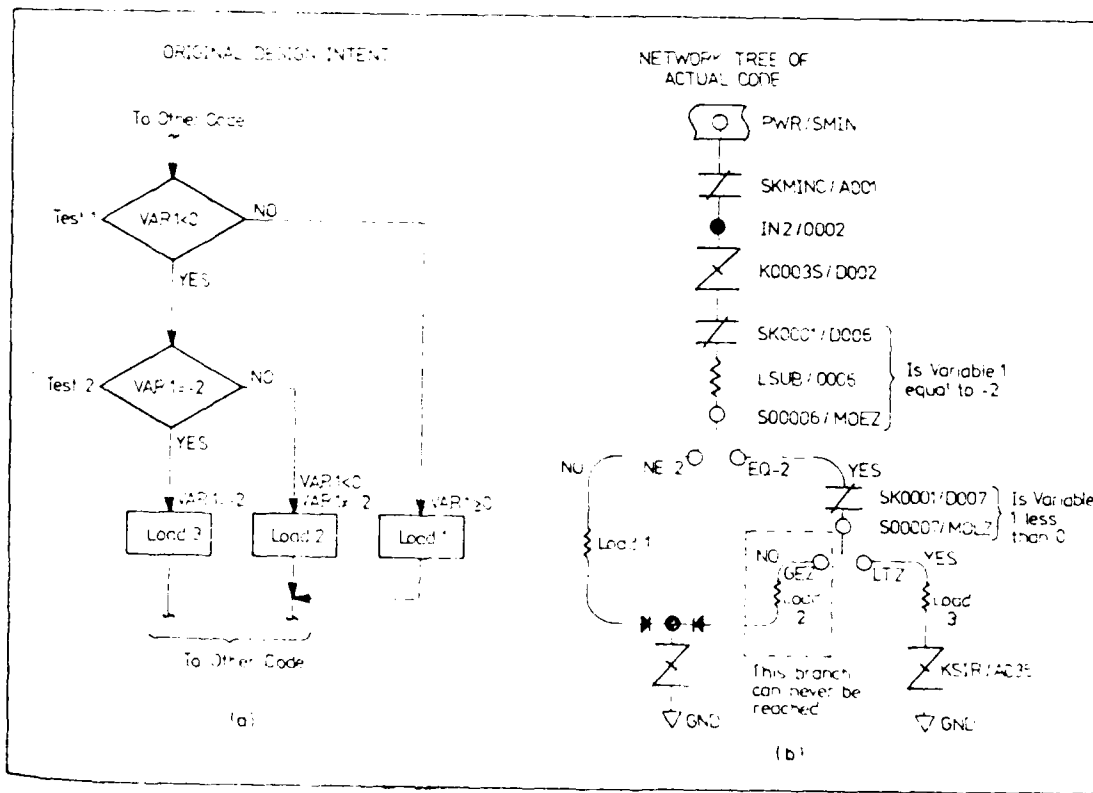 ORIGINAL DESIGN INTENT
To Other Code
Test 1
VAR1<0
NO
YES
Test 2
NO
YES
VAR1<0
VAR1≥0
Load 3
Load 2
Load 1
To Other Code
(a)
NETWORK TREE OF
ACTUAL CODE
PWR/SMIN
SKMINC/A001
IN2/0002
K0003S/D002
SK0001/D006
LSUB/0006
S00006/MOEZ
Is Variable 1
equal to -2
NO
NE-2
EQ-2
YES
SK0001/D007
S00007/MOLZ
Is Variable
1 less
than 0
Load 1
NO
GEZ
LTZ
YES
Load
2
Load
3
This branch
can never be
reached
GND
GND
(b)